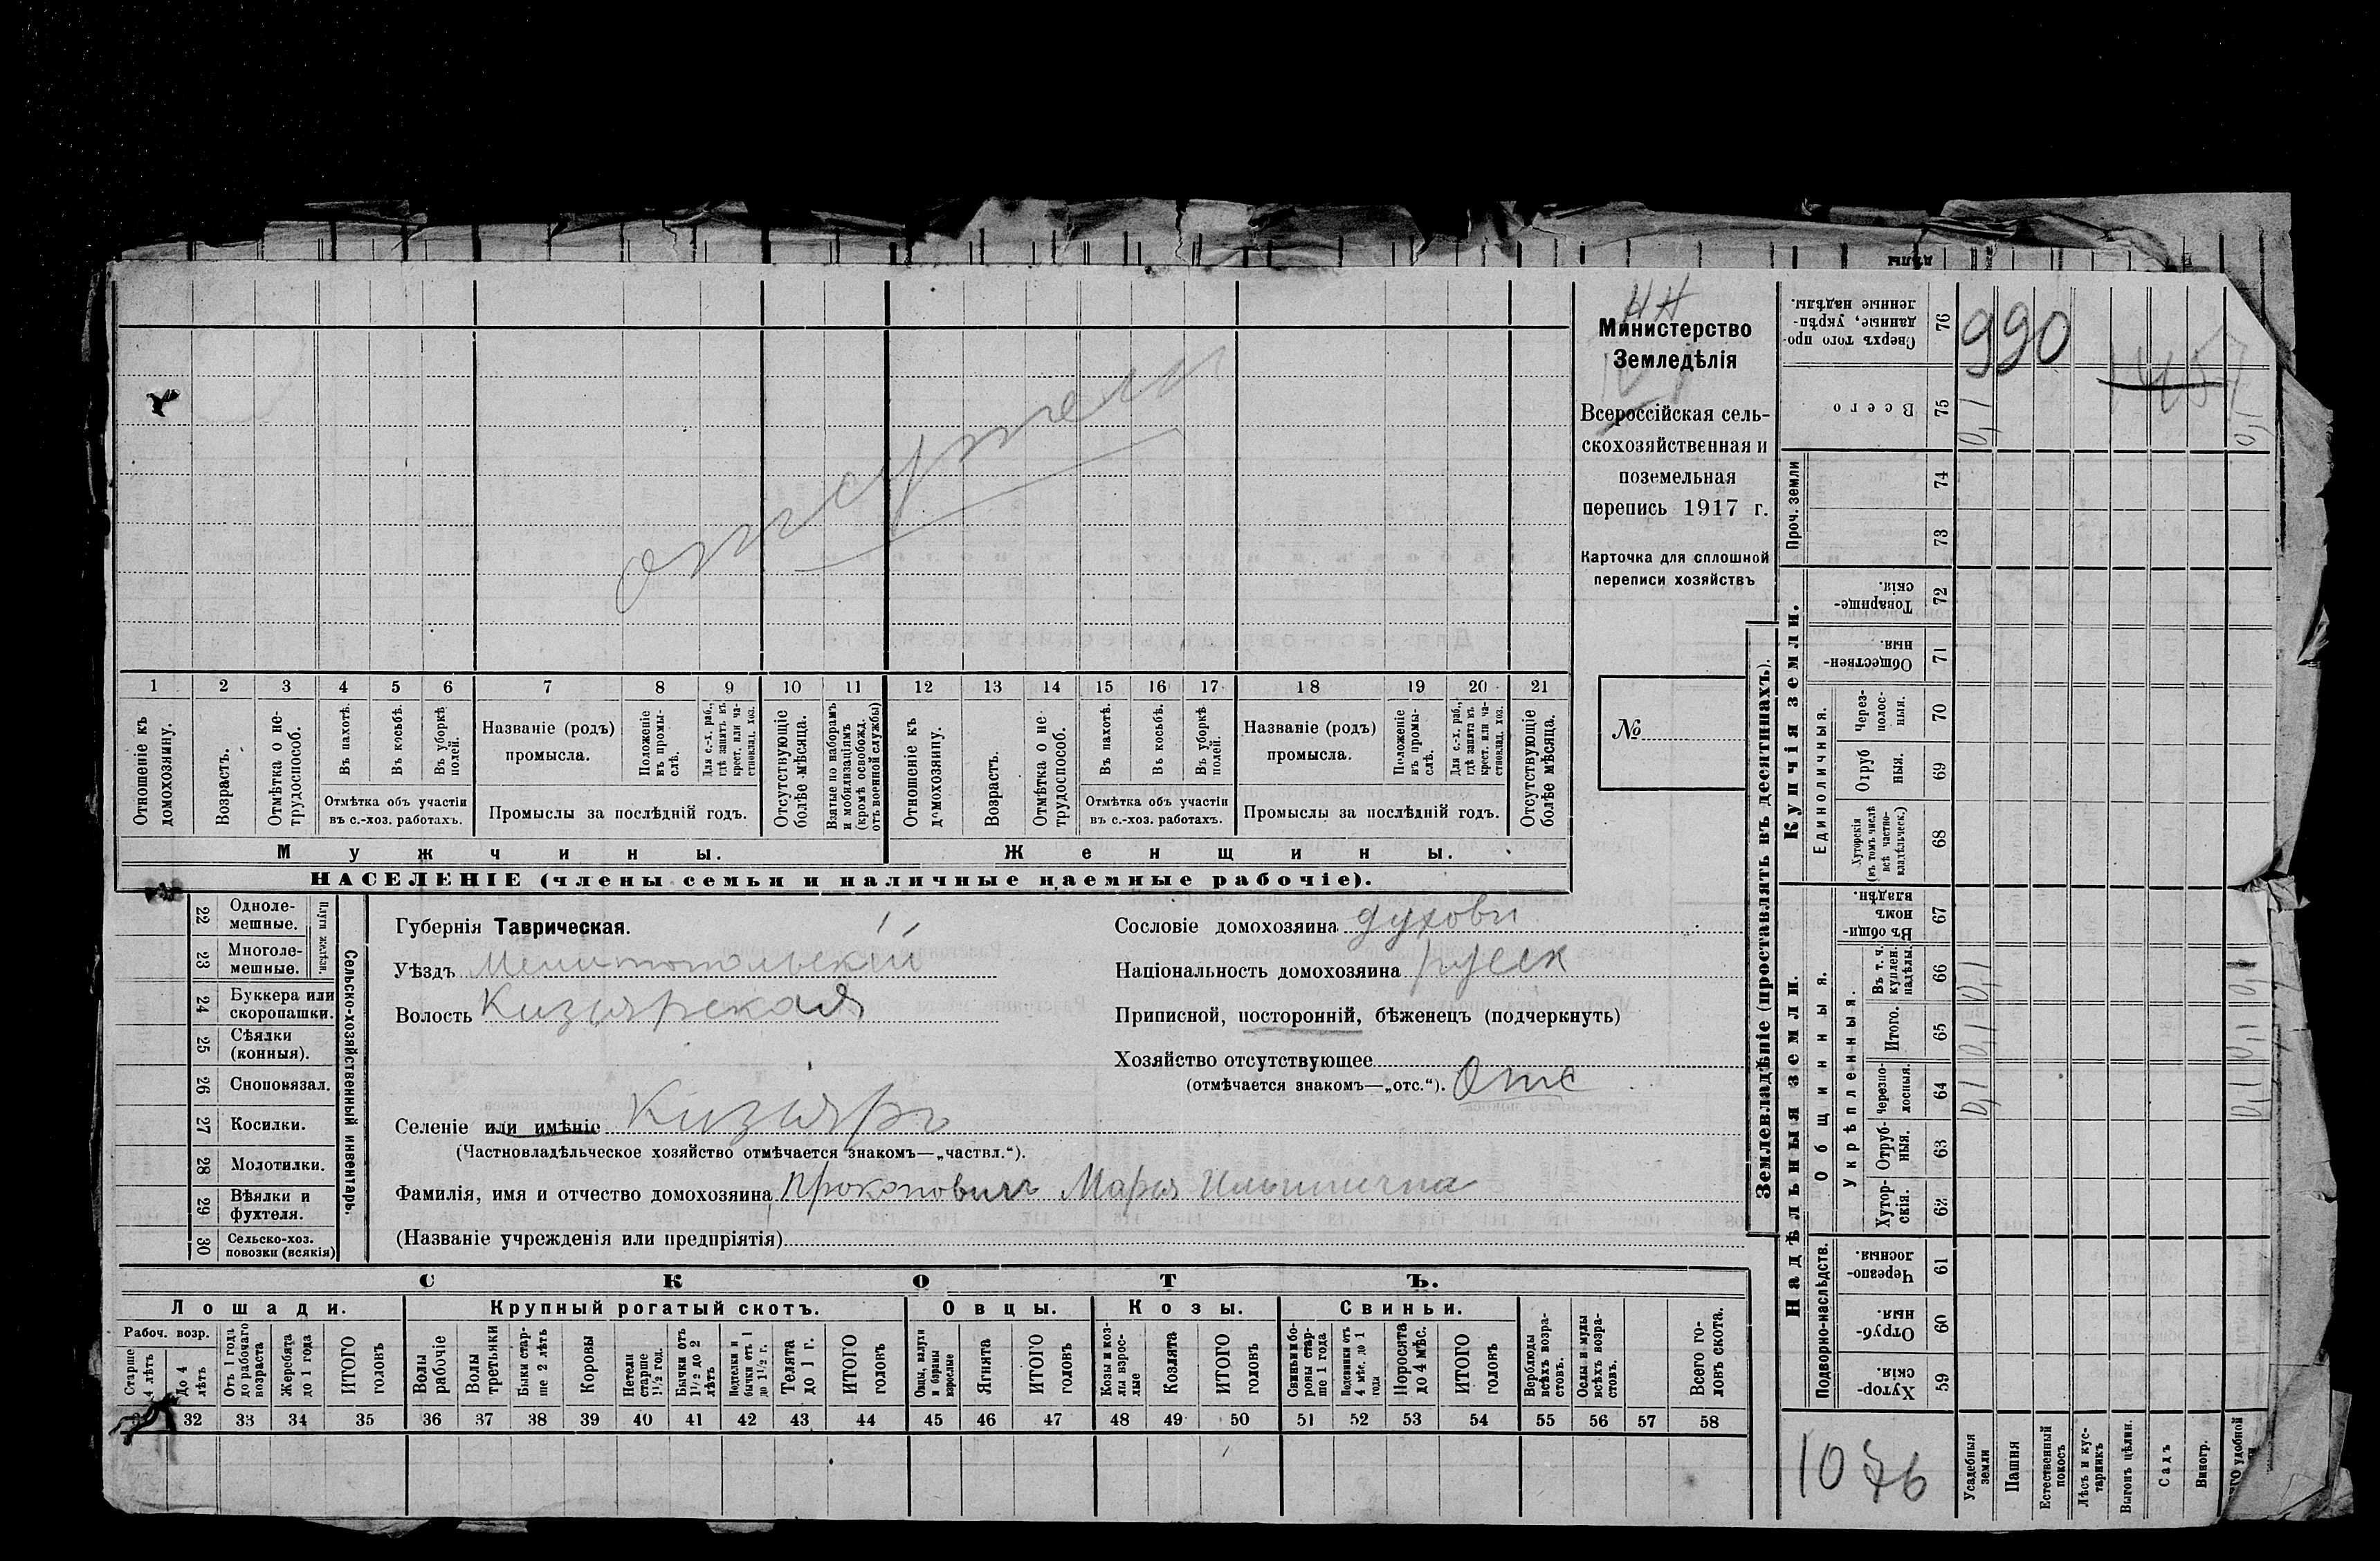 НН
Министерство
Земледѣлія
Всероссійская сель-
скохозяйственная и
поземельная
перепись 1917 г.
Карточка для сплошной
переписи хозяйствъ
№
отсутств
1 2 3 4 5 6 7 8 9 10 11 12 13 14 15 16 17 18 19 20 21
Отношеніе къ домохозяину.
Возрастъ.
Отмѣтка о не-трудоспособ.
Въ пахотѣ.
Въ косьбѣ.
Въ уборкѣ полей.
Отмѣтка объ участіи
въ с.-хоз. работахъ.
Названіе (родъ)
промысла.
Положеніе въ промы-слѣ.
Для с.-х. раб., гдѣ занятъ въ крест. или ча-стновлад. хоз.
Промыслы за послѣдній годъ.
Отсутствующіе болѣе мѣсяца.
Взятые по наборамъ и мобилизаціямъ (кромѣ освобожд. отъ военной службы)
Отношеніе къ домохозяину.
Возрастъ.
Отмѣтка о не-трудоспособ.
Въ пахотѣ.
Въ косьбѣ.
Въ уборкѣ полей.
Отмѣтка объ участіи
въ с.-хоз. работахъ.
Названіе (родъ)
промысла.
Положеніе въ промы-слѣ.
Для с.-х. раб., гдѣ занятъ въ крест. или ча-стновлад. хоз.
Промыслы за послѣдній годъ.
Отсутствующіе болѣе мѣсяца.
Мужчины.
Женщины.
НАСЕЛЕНІЕ (члены семьи и наличные наемные рабочіе).
22 Одноле-мешные.
23 Многоле-мешные.
Плуги желѣзн.
24 Буккера или скоропашки.
25 Сѣялки (конныя).
26 Сноповязал.
27 Косилки.
28 Молотилки.
29 Вѣялки и фухтеля.
30 Сельско-хоз. повозки (всякія)
Сельско-хозяйственный инвентарь.
Губернія Таврическая.
Уѣздъ Мелитопольскій
Волость Кизіярская
Селеніе или имѣніе Кизіяръ
(Частновладѣльческое хозяйство отмѣчается знакомъ—„частвл.“).
Фамилія, имя и отчество домохозяина Прокоповичъ Марья Ильинична
(Названіе учрежденія или предпріятія)
Сословіе домохозяина духовн
Національность домохозяина русск
Приписной, посторонній, бѣженецъ (подчеркнуть)
Хозяйство отсутствующее
(отмѣчается знакомъ—„отс.“). Отс
СКОТЪ.
Лошади.
Крупный рогатый скотъ.
Овцы.
Козы.
Свиньи.
Рабоч. возр.
Старше 4 лѣтъ
До 4 лѣтъ
Отъ 1 года до рабочаго возраста
Жеребята до 1 года
ИТОГО головъ
Волы рабочіе
Волы третьяки
Быки стар-ше 2 лѣтъ
Коровы
Нетели старше 1½ год.
Бычки отъ 1½ до 2 лѣтъ
Подтелки и бычки отъ 1 до 1½ г.
Телята до 1 г.
ИТОГО головъ
Овцы, валухи и бараны взрослые
Ягнята
ИТОГО головъ
Козы и коз-лы взрос-лые
Козлята
ИТОГО головъ
Свиньи и бо-ровы стар-ше 1 года
Подсвинки отъ 4 мѣс. до 1 года
Поросята до 4 мѣс.
ИТОГО головъ
Верблюды всѣхъ возра-стовъ.
Ослы и мулы всѣхъ возра-стовъ.
Всего го-ловъ скота.
32 33 34 35 36 37 38 39 40 41 42 43 44 45 46 47 48 49 50 51 52 53 54 55 56 57 58
Землевладѣніе (проставлять въ десятинахъ).
Надѣльныя земли.
Купчія земли.
Подворно-наслѣдств.
Общинныя.
Укрѣпленныя.
Единоличныя.
Проч. земли
Хутор-скія. 59
Отруб-ныя. 60
Черезпо-лосныя. 61
Хутор-скія. 62
Отруб-ныя. 63
Черезпо-лосныя. 64
Итого. 65
Въ т. ч. куплен. надѣлы. 66
Въ общи-номъ владѣн. 67
Хуторскія (въ томъ числѣ всѣ частно-владѣльческ.) 68
Отруб ныя. 69
Через-полос-ныя. 70
Обществен-ныя. 71
Товарище-скія. 72
73
74
Всего 75
Сверхъ того про-данные, укрѣп-ленные надѣлы. 76
990
1457
0,1 0,1 0,1 0,1
0,1 0,1 0,1 0,1
1076
Усадебныя земли
Пашня
Естественный покосъ
Лѣсъ и кус-тарникъ
Выгонъ цѣлин.
Садъ
Виногр.
удобной